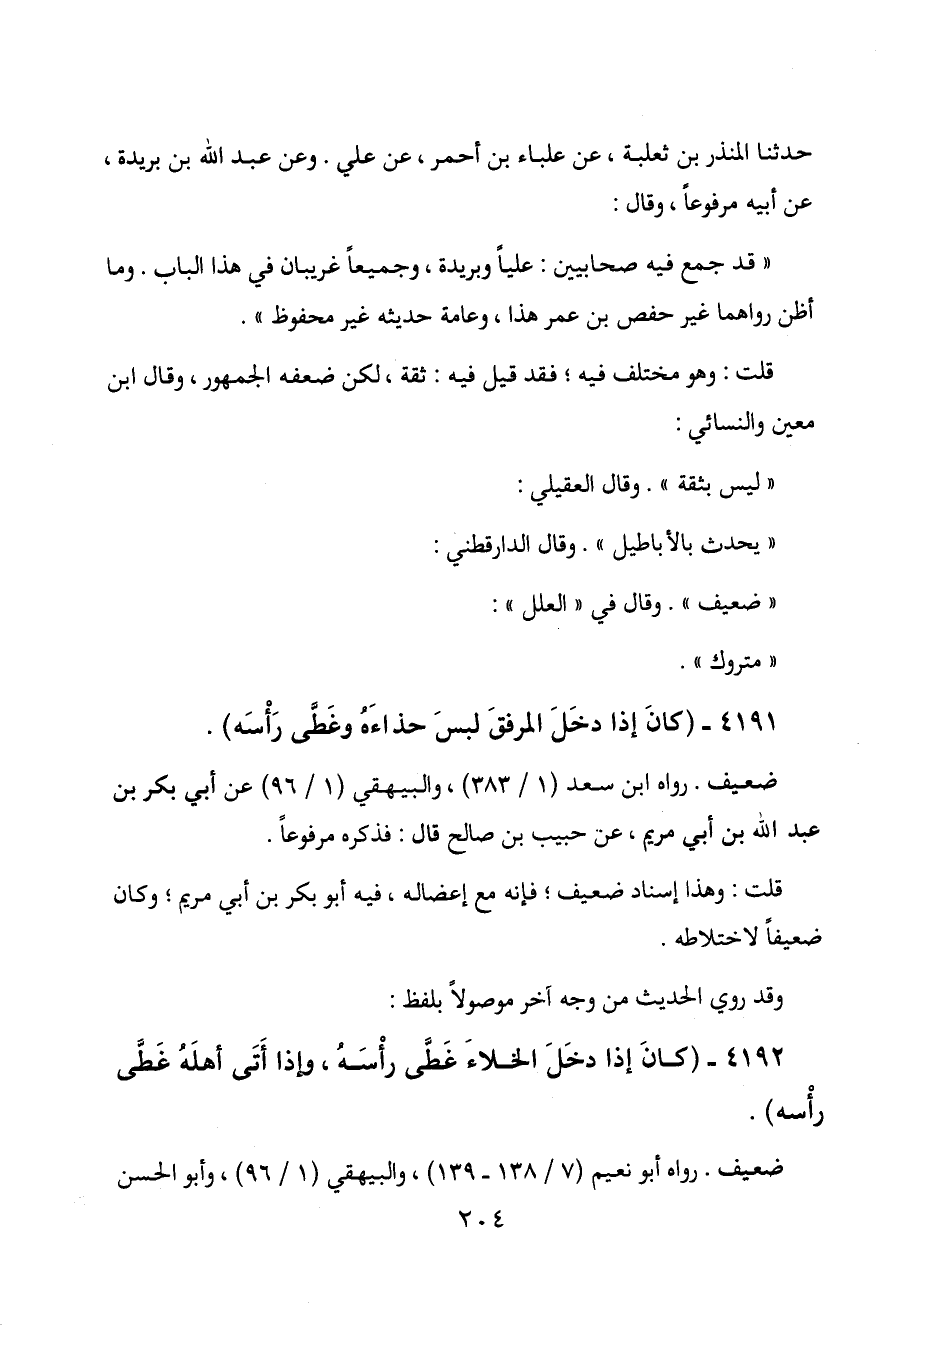 حدثنا المنذر بن ثعلبة ، عن علباء بن أحمر ، عن علي . وعن عبد الله بن بريدة ،
عن أبيه مرفوعاً ، وقال :
« قد جمع فيه صحابيين : علياً وبريدة ، وجميعاً غريبان في هذا الباب . وما
أظن رواهما غير حفص بن عمر هذا ، وعامة حديثه غير محفوظ » .
قلت : وهو مختلف فيه ؛ فقد قيل فيه : ثقة ، لكن ضعفه الجمهور ، وقال ابن
معين والنسائي :
« ليس بثقة » . وقال العقيلي :
« يحدث بالأباطيل » . وقال الدارقطني :
« ضعيف » . وقال في « العلل » :
« متروك » .
٤١٩١ ـ (كانَ إذا دخَلَ المرفقَ لبسَ حذاءَهُ وغَطَّى رَأْسَه) .
ضعيف . رواه ابن سعد (١ / ٣٨٣) ، والبيهقي (١ / ٩٦) عن أبي بكر بن
عبد الله بن أبي مريم ، عن حبيب بن صالح قال : فذكره مرفوعاً .
قلت : وهذا إسناد ضعيف ؛ فإنه مع إعضاله ، فيه أبو بكر بن أبي مريم ؛ وكان
ضعيفاً لاختلاطه .
وقد روي الحديث من وجه آخر موصولاً بلفظ :
٤١٩٢ ـ (كـانَ إذا دخَلَ الخـلاءَ غَطَّى رأْسَـهُ ، وإذا أَتَى أهلَهُ غَطَّى
رأْسه) .
ضعيف . رواه أبو نعيم (٧ / ١٣٨ ـ ١٣٩) ، والبيهقي (١ / ٩٦) ، وأبو الحسن
٢٠٤